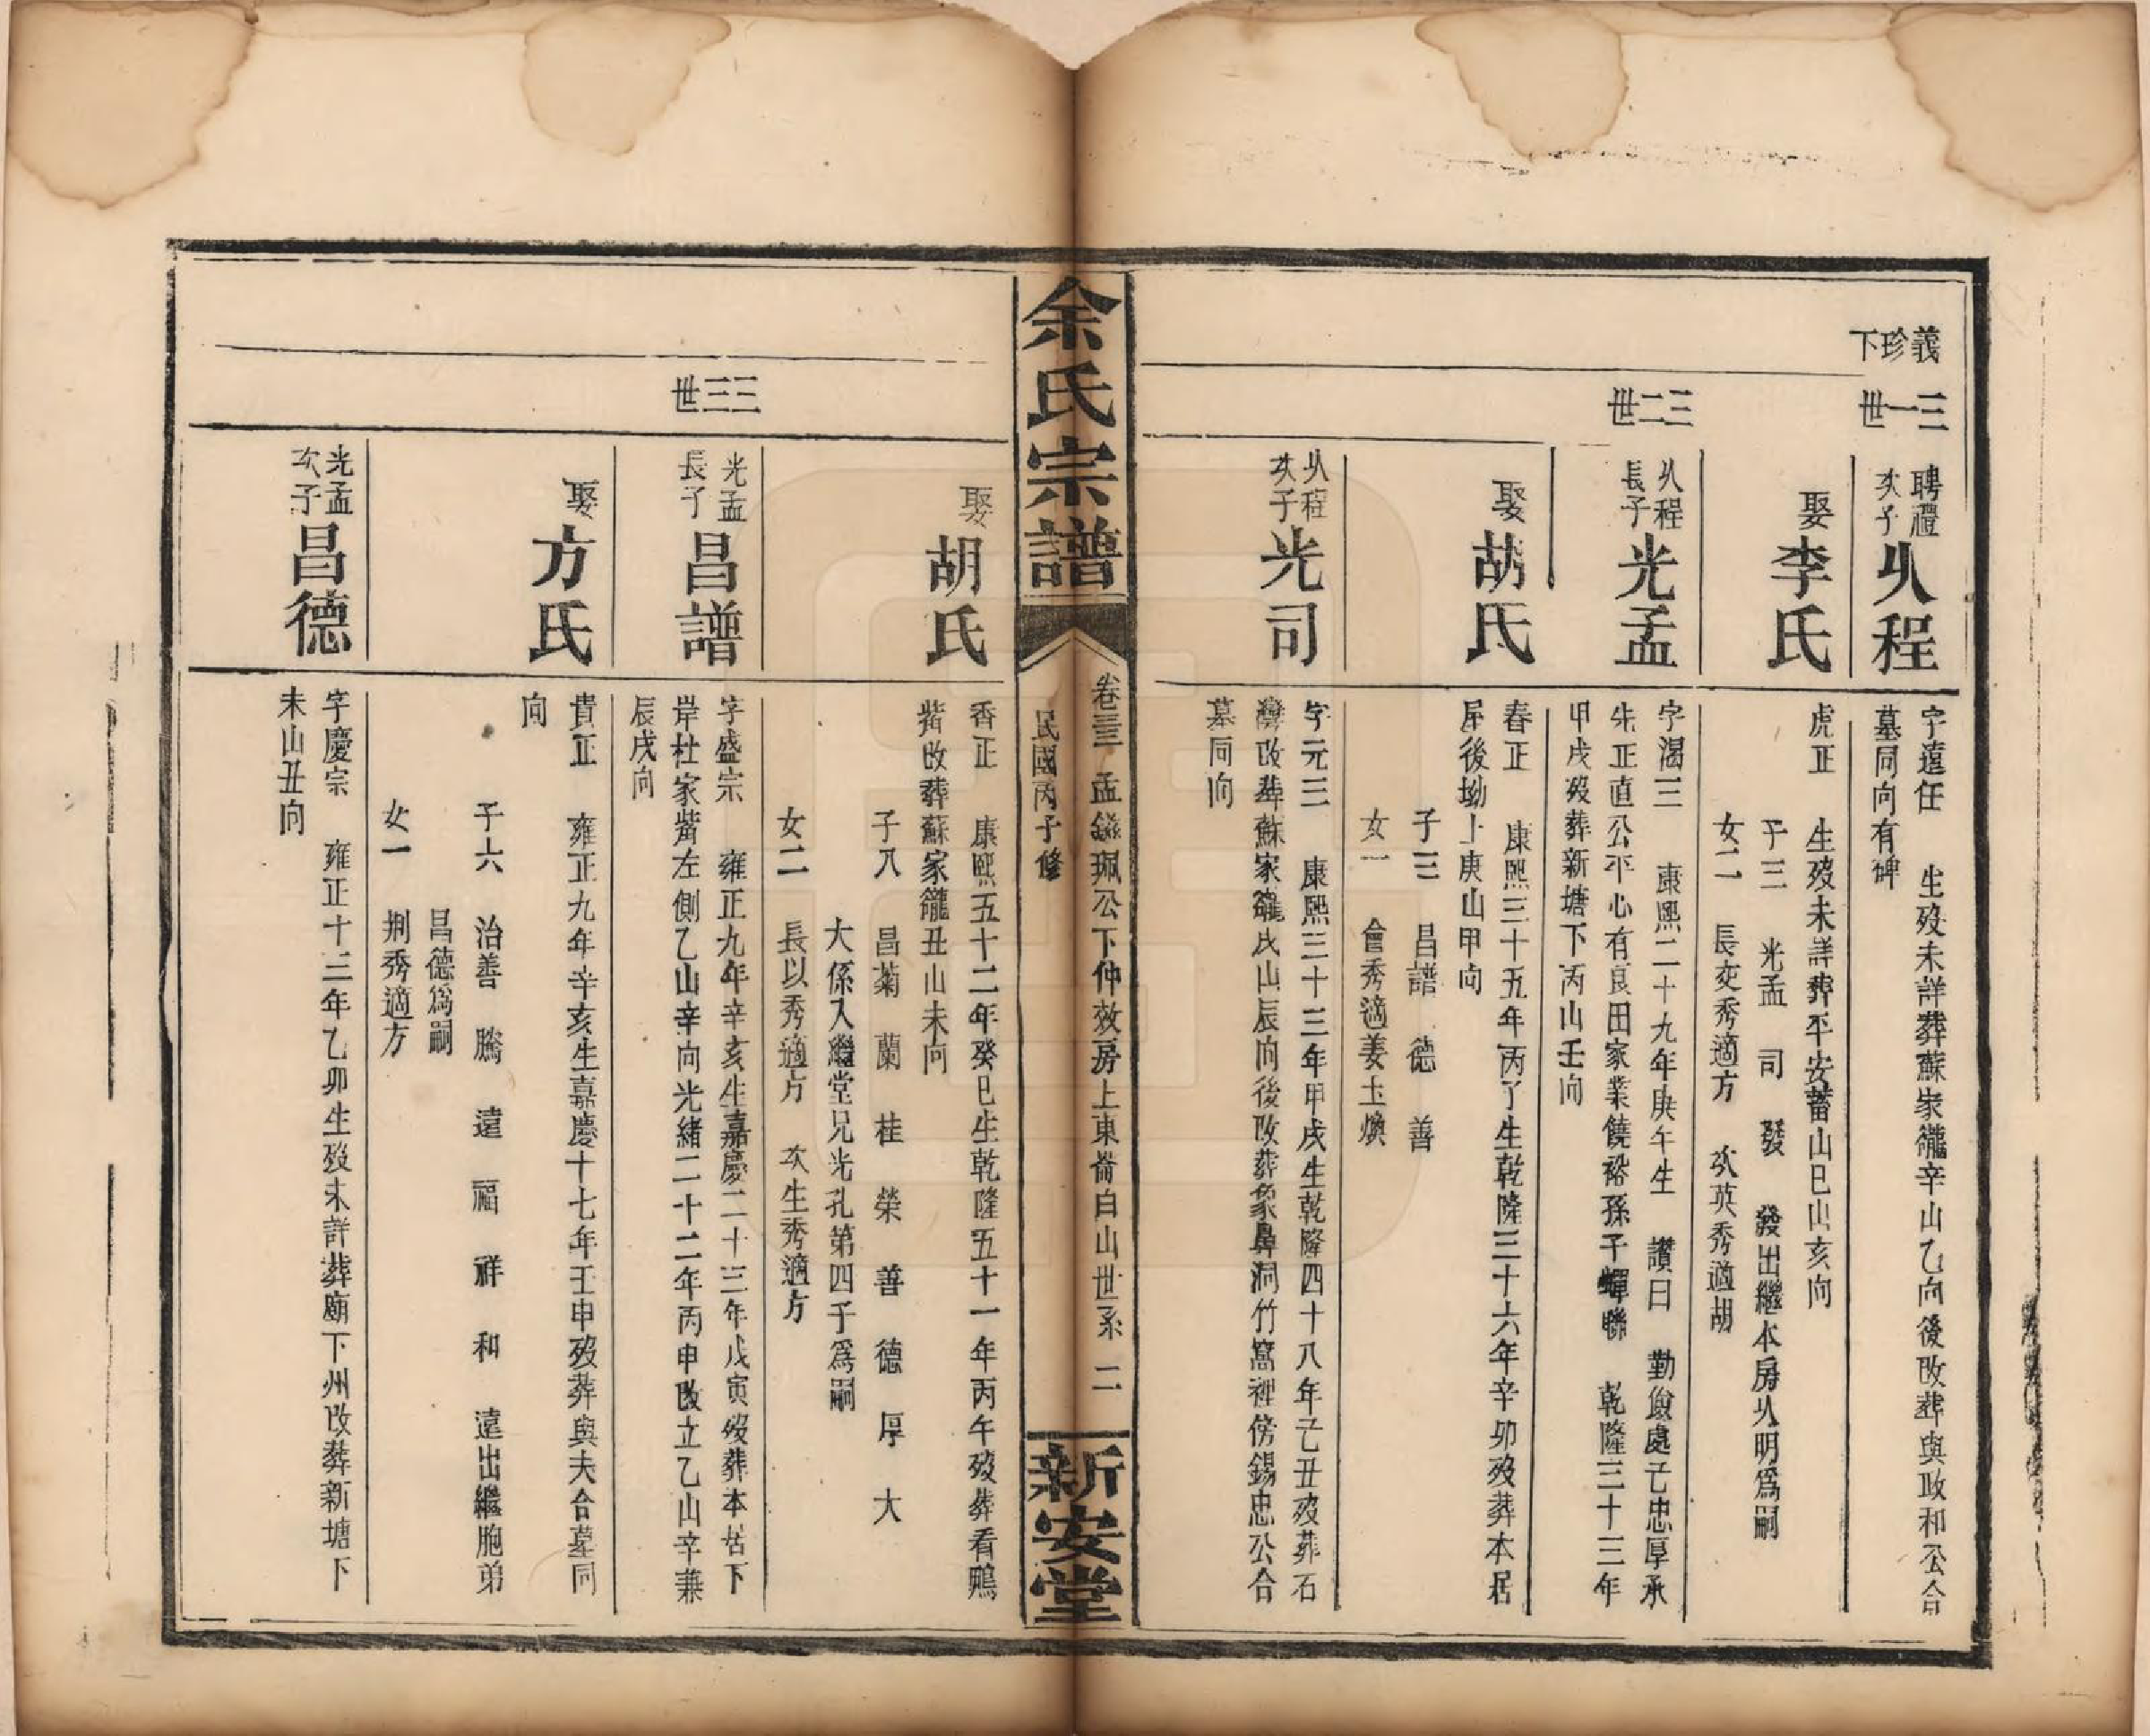 義珍下
三一世
聘禮次子
𠆩程
字遠任 生歿未詳葬蘇家籠辛山乙向後改葬與政和公合
墓同向有碑
娶李氏
虎正 生歿未詳葬平安蓄山巳山亥向
子三 光孟 司 發 發出繼本房𠆩明爲嗣
女二 長交秀適方 次英秀適胡
三二世
𠆩程長子
光孟
字渴三 康熙二十九年庚午生 讃曰 勤儉處己忠厚承
先正直公平心有良田家業饒裕孫子蟬聯 乾隆三十三年
甲戌歿葬新塘下丙山壬向
娶胡氏
春正 康熙三十五年丙子生乾隆三十六年辛卯歿葬本居
屋後坳上庚山甲向
子三 昌譜 德 善
女一 會秀適姜玉煥
𠆩程次子
光司
字元三 康熙三十三年甲戌生乾隆四十八年乙丑歿葬石
灣改葬蘇家籠戌山辰向後改葬象鼻洞竹窩裡傍錫忠公合
墓同向
余氏宗譜
卷三三 孟鎡珮公下仲效房上東崙白山世系 二
民國丙子修
新安堂
娶胡氏
香正 康熙五十二年癸巳生乾隆五十一年丙午歿葬看鴨
嘴改葬蘇家籠丑山未向
子八 昌菊 蘭 桂 榮 善 德 厚 大
大係入繼堂兄光孔第四子爲嗣
女二 長以秀適方 次生秀適方
三三世
光孟長子
昌譜
字盛宗 雍正九年辛亥生嘉慶二十三年戊寅歿葬本岾下
岸杜家嘴左側乙山辛向光緒二十二年丙申改立乙山辛兼
辰戌向
娶方氏
貴正 雍正九年辛亥生嘉慶十七年壬申歿葬與夫合墓同
向
子六 治善 騰 遠 福 祥 和 遠出繼胞弟
昌德爲嗣
女一 荆秀適方
光孟次子
昌德
字慶宗 雍正十三年乙卯生歿未詳葬廟下州改葬新塘下
未山丑向